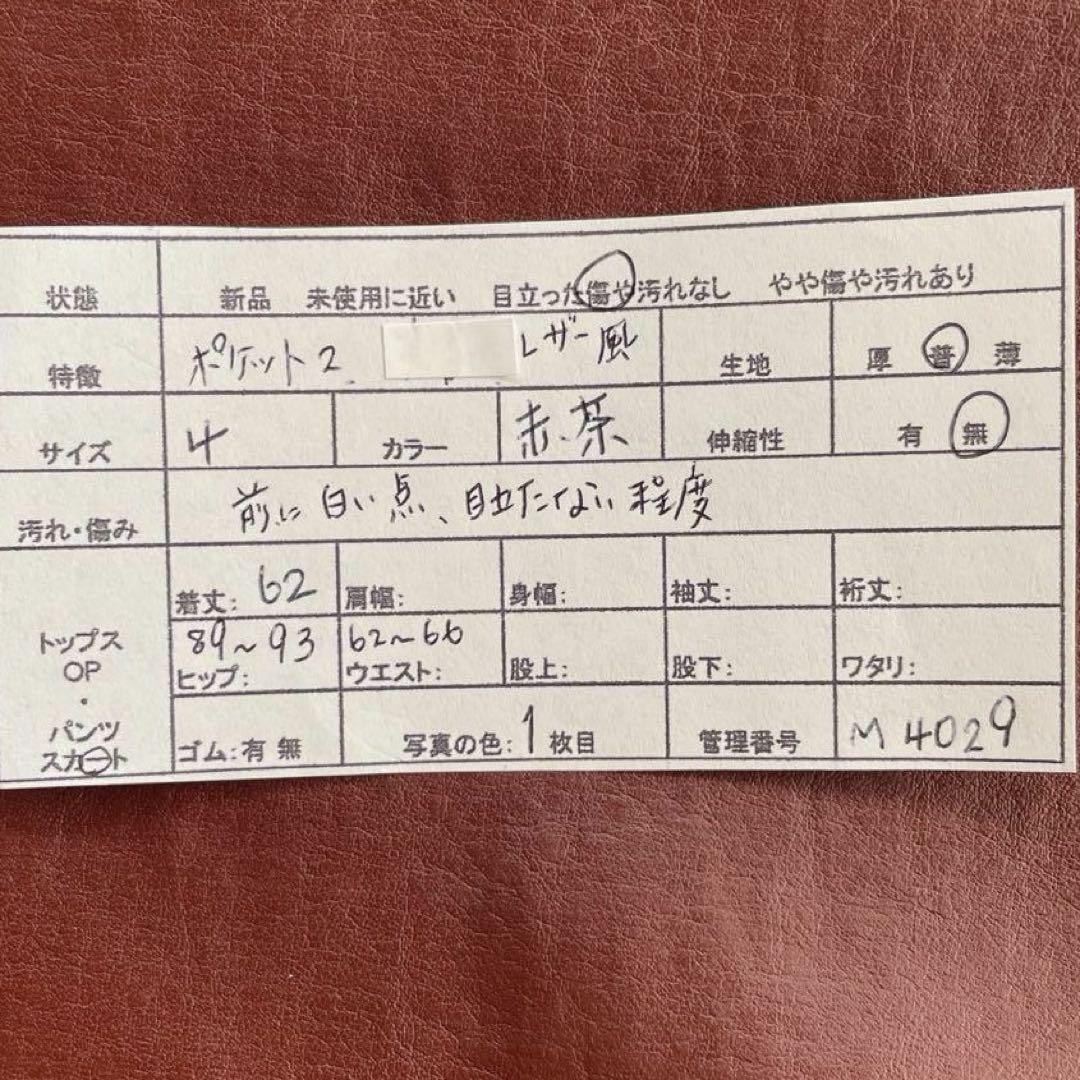 状態 新品 未使用に近い 目立った傷や汚れなし やや傷や汚れあり
特徴 ポケット2 レザー風 生地 厚 普 薄
サイズ 4 カラー 赤、茶 伸縮性 有 無
汚れ・傷み 前に白い点、目立たない程度
着丈: 62 肩幅: 身幅: 袖丈: 裄丈:
トップス
OP
・
パンツ
スカート
89~93 62~66
ヒップ: ウエスト: 股上: 股下: ワタリ:
ゴム: 有 無 写真の色: 1 枚目 管理番号 M4029